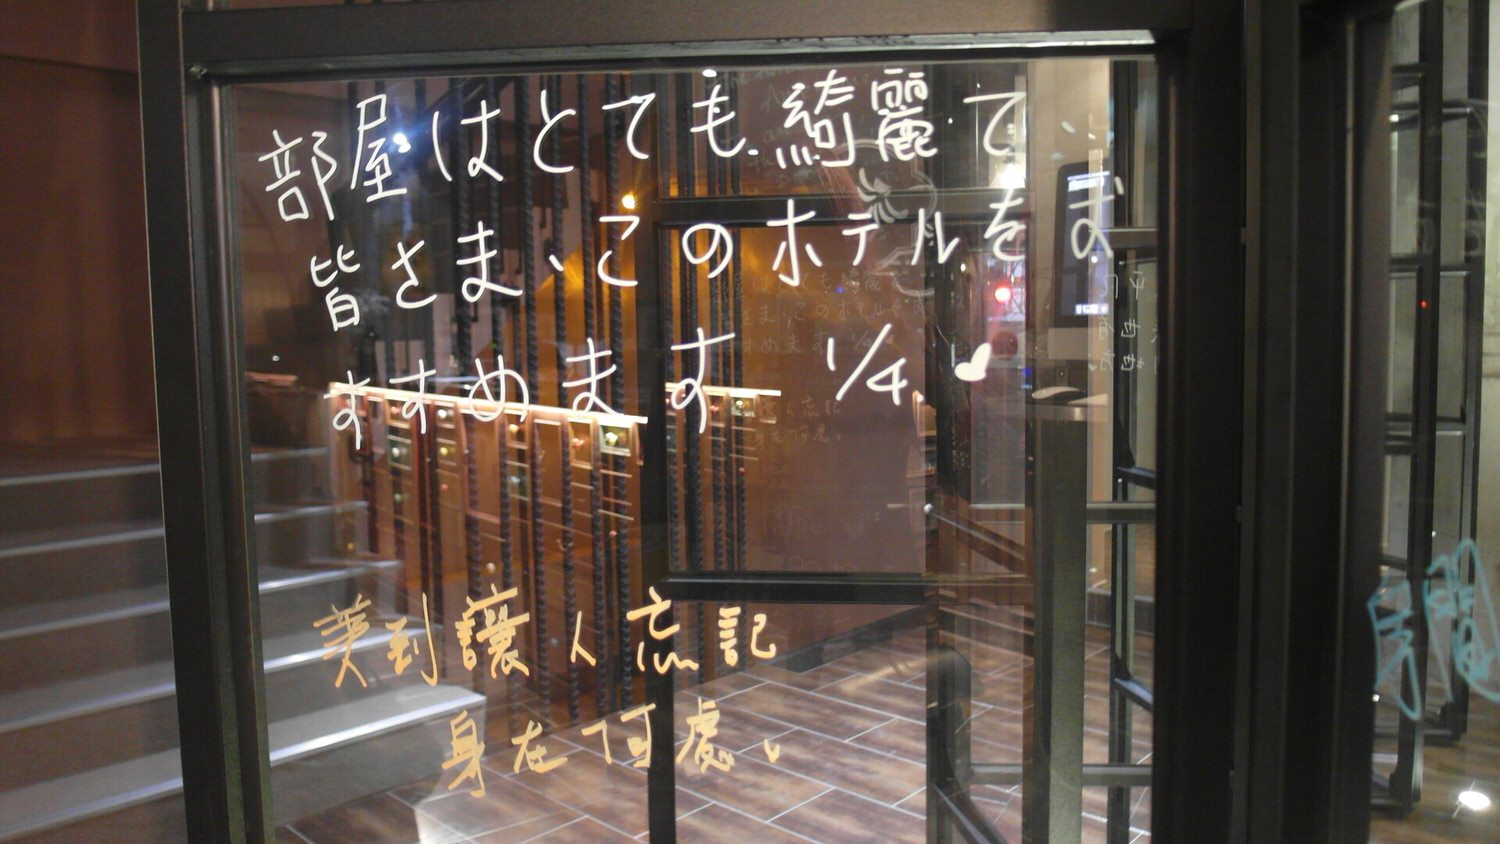 部屋はとても綺麗で
皆さま、このホテルをお
すすめます 1/4
美到讓人忘記
身在何處